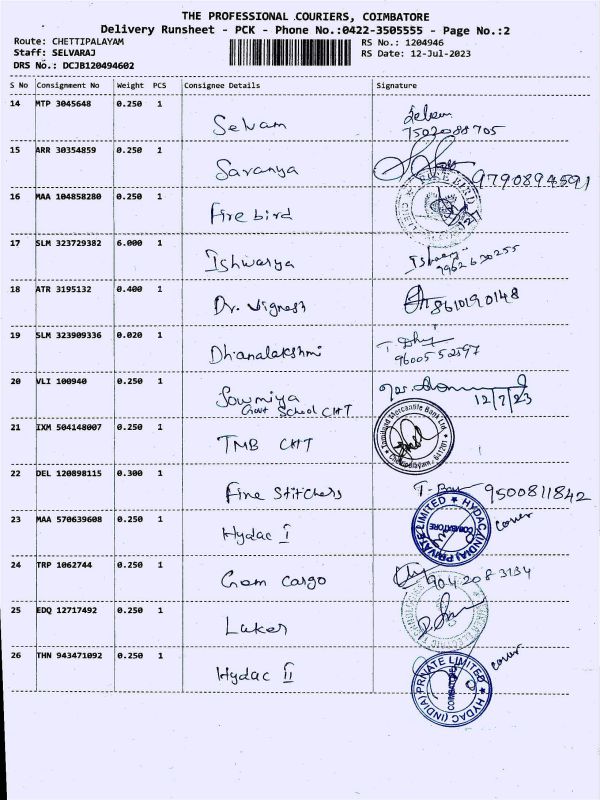 THE PROFESSIONAL COURIERS, COIMBATORE
Delivery Runsheet - PCK - Phone No.:0422-3505555 - Page No.:2
Route: CHETTIPALAYAM
RS No.: 1204946
Staff: SELVARAJ
RS Date: 12-Jul-2023
DRS No.: DCJB120494602
S No Consignment No Weight PCS Consignee Details Signature
14 MTP 3045648 0.250 1 Selvam
15 ARR 30354859 0.250 1 Saranya 9790894591
16 MAA 104858280 0.250 1 Fire bird FIRE BIRD
17 SLM 323729382 6.000 1 Ishwarya 7962630255
18 ATR 3195132 0.400 1 Dr. Vignesh 8610190148
19 SLM 323909336 0.020 1 Dhanalakshmi
20 VLI 100940 0.250 1 Sowmiya 12/7/23
Govt School CHT
21 IXM 504148007 0.250 1 TMB CHT Tamilnad Mercantile Bank Ltd. Chettipalayam - 641201
22 DEL 120898115 0.300 1 Fine Stitchers 9500811842
23 MAA 570639608 0.250 1 Hydac I HYDAC (INDIA) PRIVATE LIMITED COIMBATORE cover
24 TRP 1062744 0.250 1 Gem cargo 9042083134
25 EDQ 12717492 0.250 1 Laker
26 THN 943471092 0.250 1 Hydac II HYDAC (INDIA) PRIVATE LIMITED COIMBATORE cover